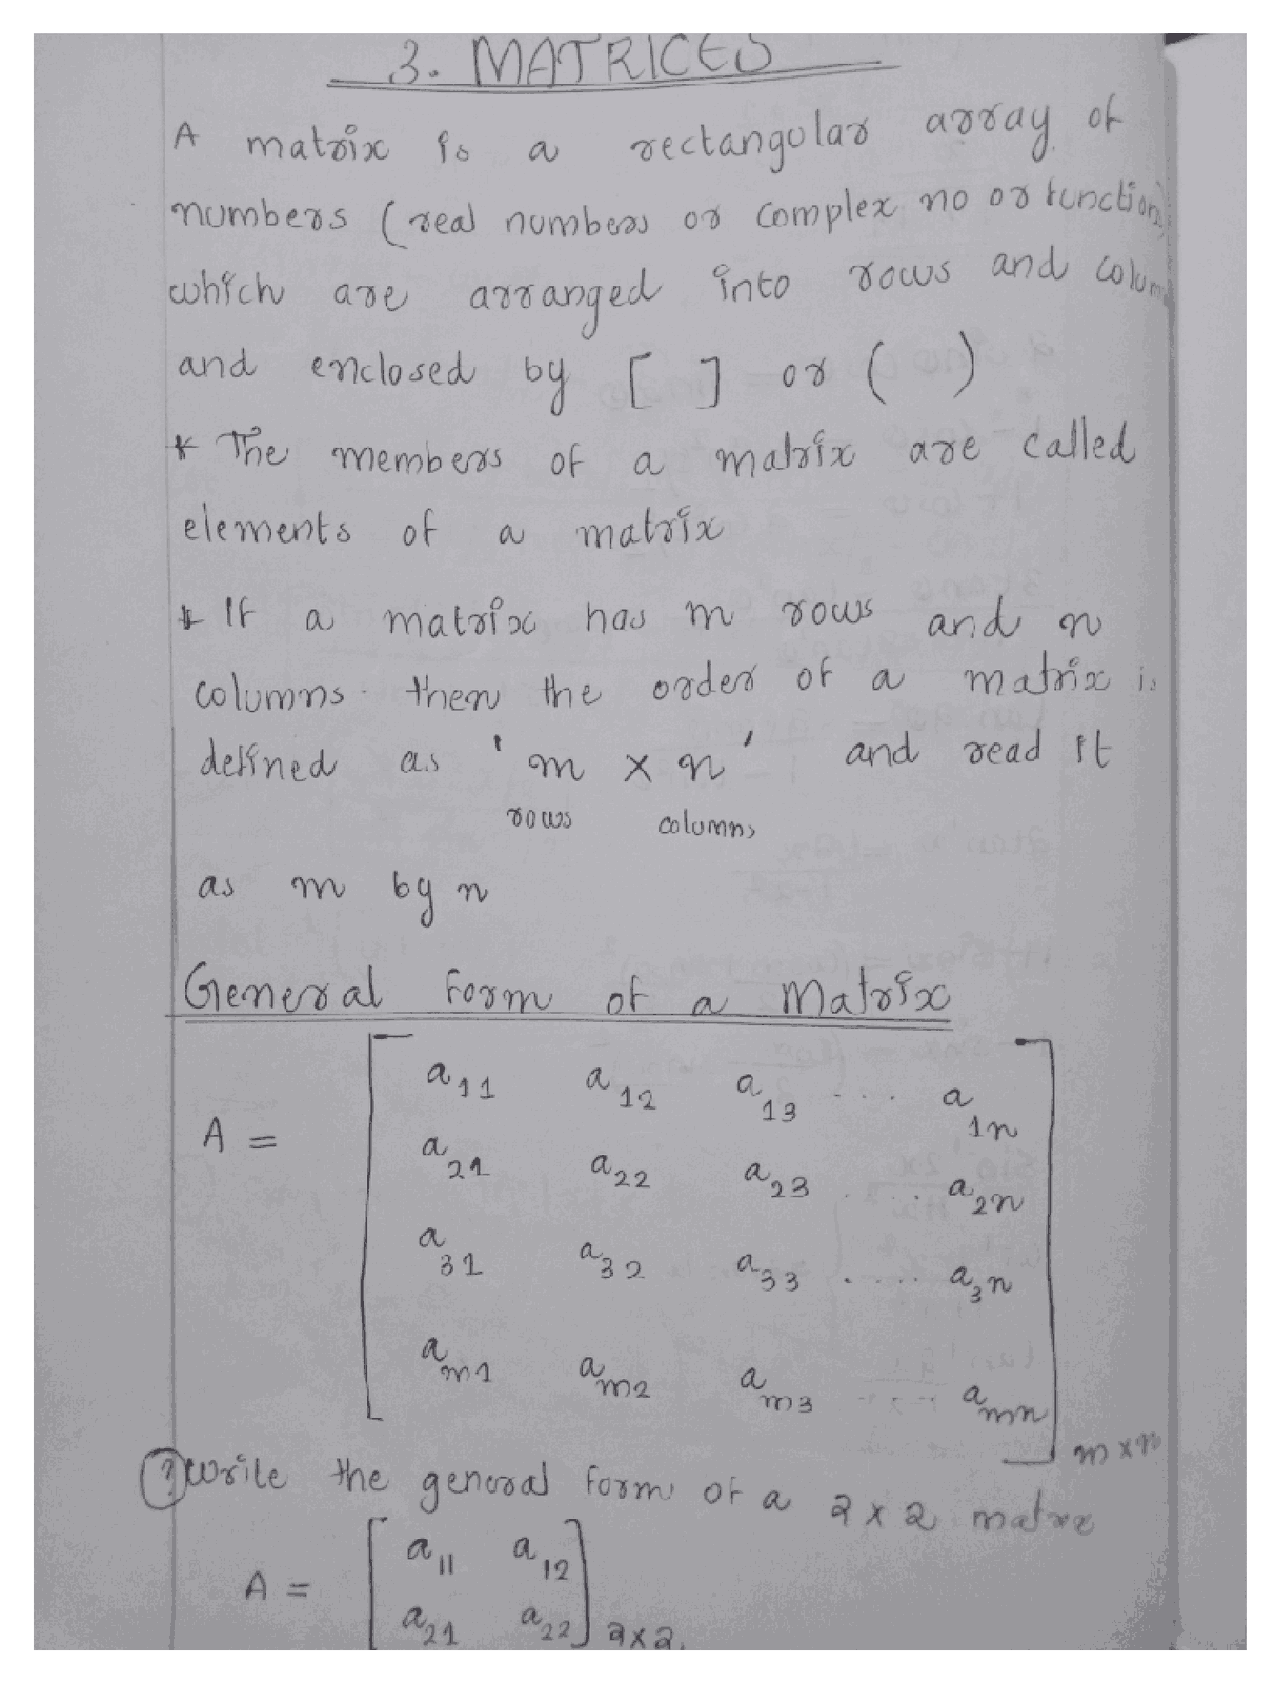 3. MATRICES
A matrix is a rectangular array of
numbers (real numbers or complex no or function)
which are arranged into rows and colum
and enclosed by [ ] or ( )
* The members of a matrix are called
elements of a matrix
* If a matrix has m rows and n
columns then the order of a matrix is
defined as 'm × n' and read it
rows columns
as m by n
General form of a Matrix
A = [ a11 a12 a13 ... a1n
a21 a22 a23 .... a2n
a31 a32 a33 ..... a3n
am1 am2 am3 .... amn ] m×n
? Write the general form of a 2 × 2 matrx
A = [ a11 a12
a21 a22 ] 2×2.